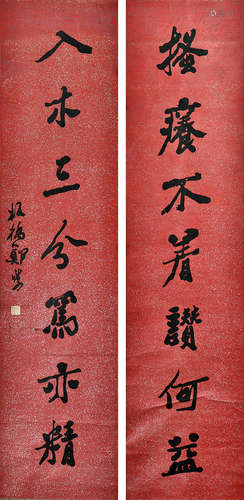 搔癢不著讚何益
入木三分罵亦精
板橋鄭燮